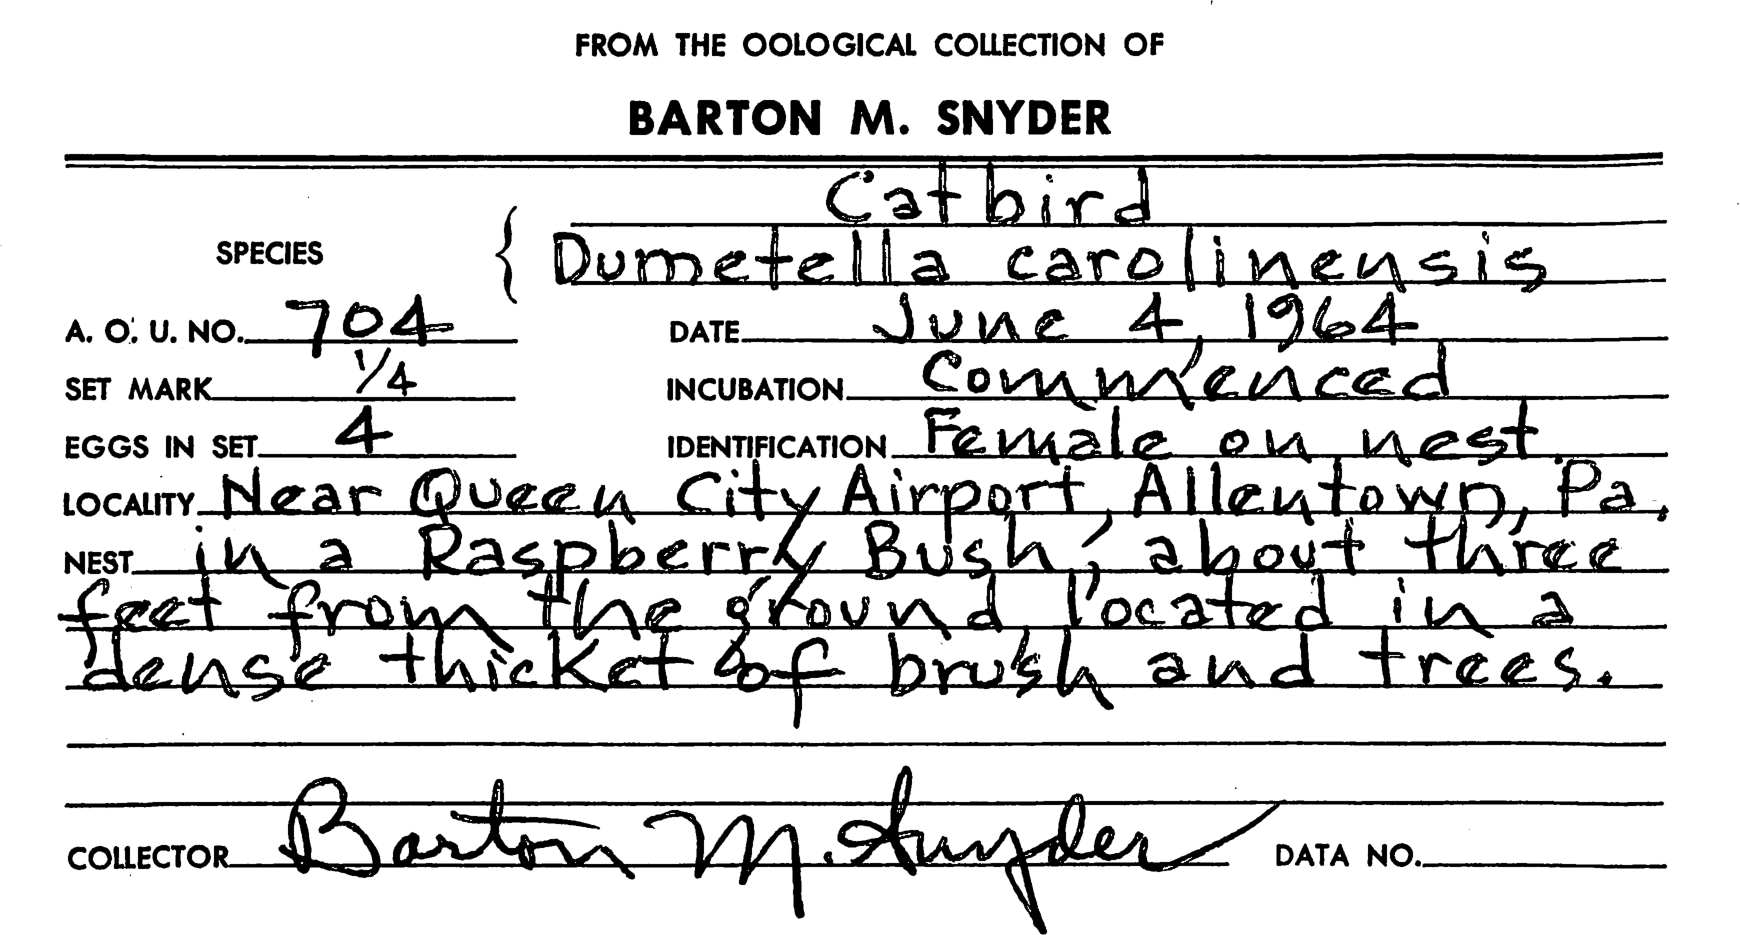 FROM THE OOLOGICAL COLLECTION OF
BARTON M. SNYDER
Catbird
SPECIES { Dumetella carolinensis
A. O. U. NO. 704 DATE June 4, 1964
SET MARK 1/4 INCUBATION Commenced
EGGS IN SET 4 IDENTIFICATION Female on nest.
LOCALITY Near Queen City Airport, Allentown, Pa.
NEST in a Raspberry Bush, about three
feet from the ground, located in a
dense thicket of brush and trees.
COLLECTOR Barton M. Snyder DATA NO.